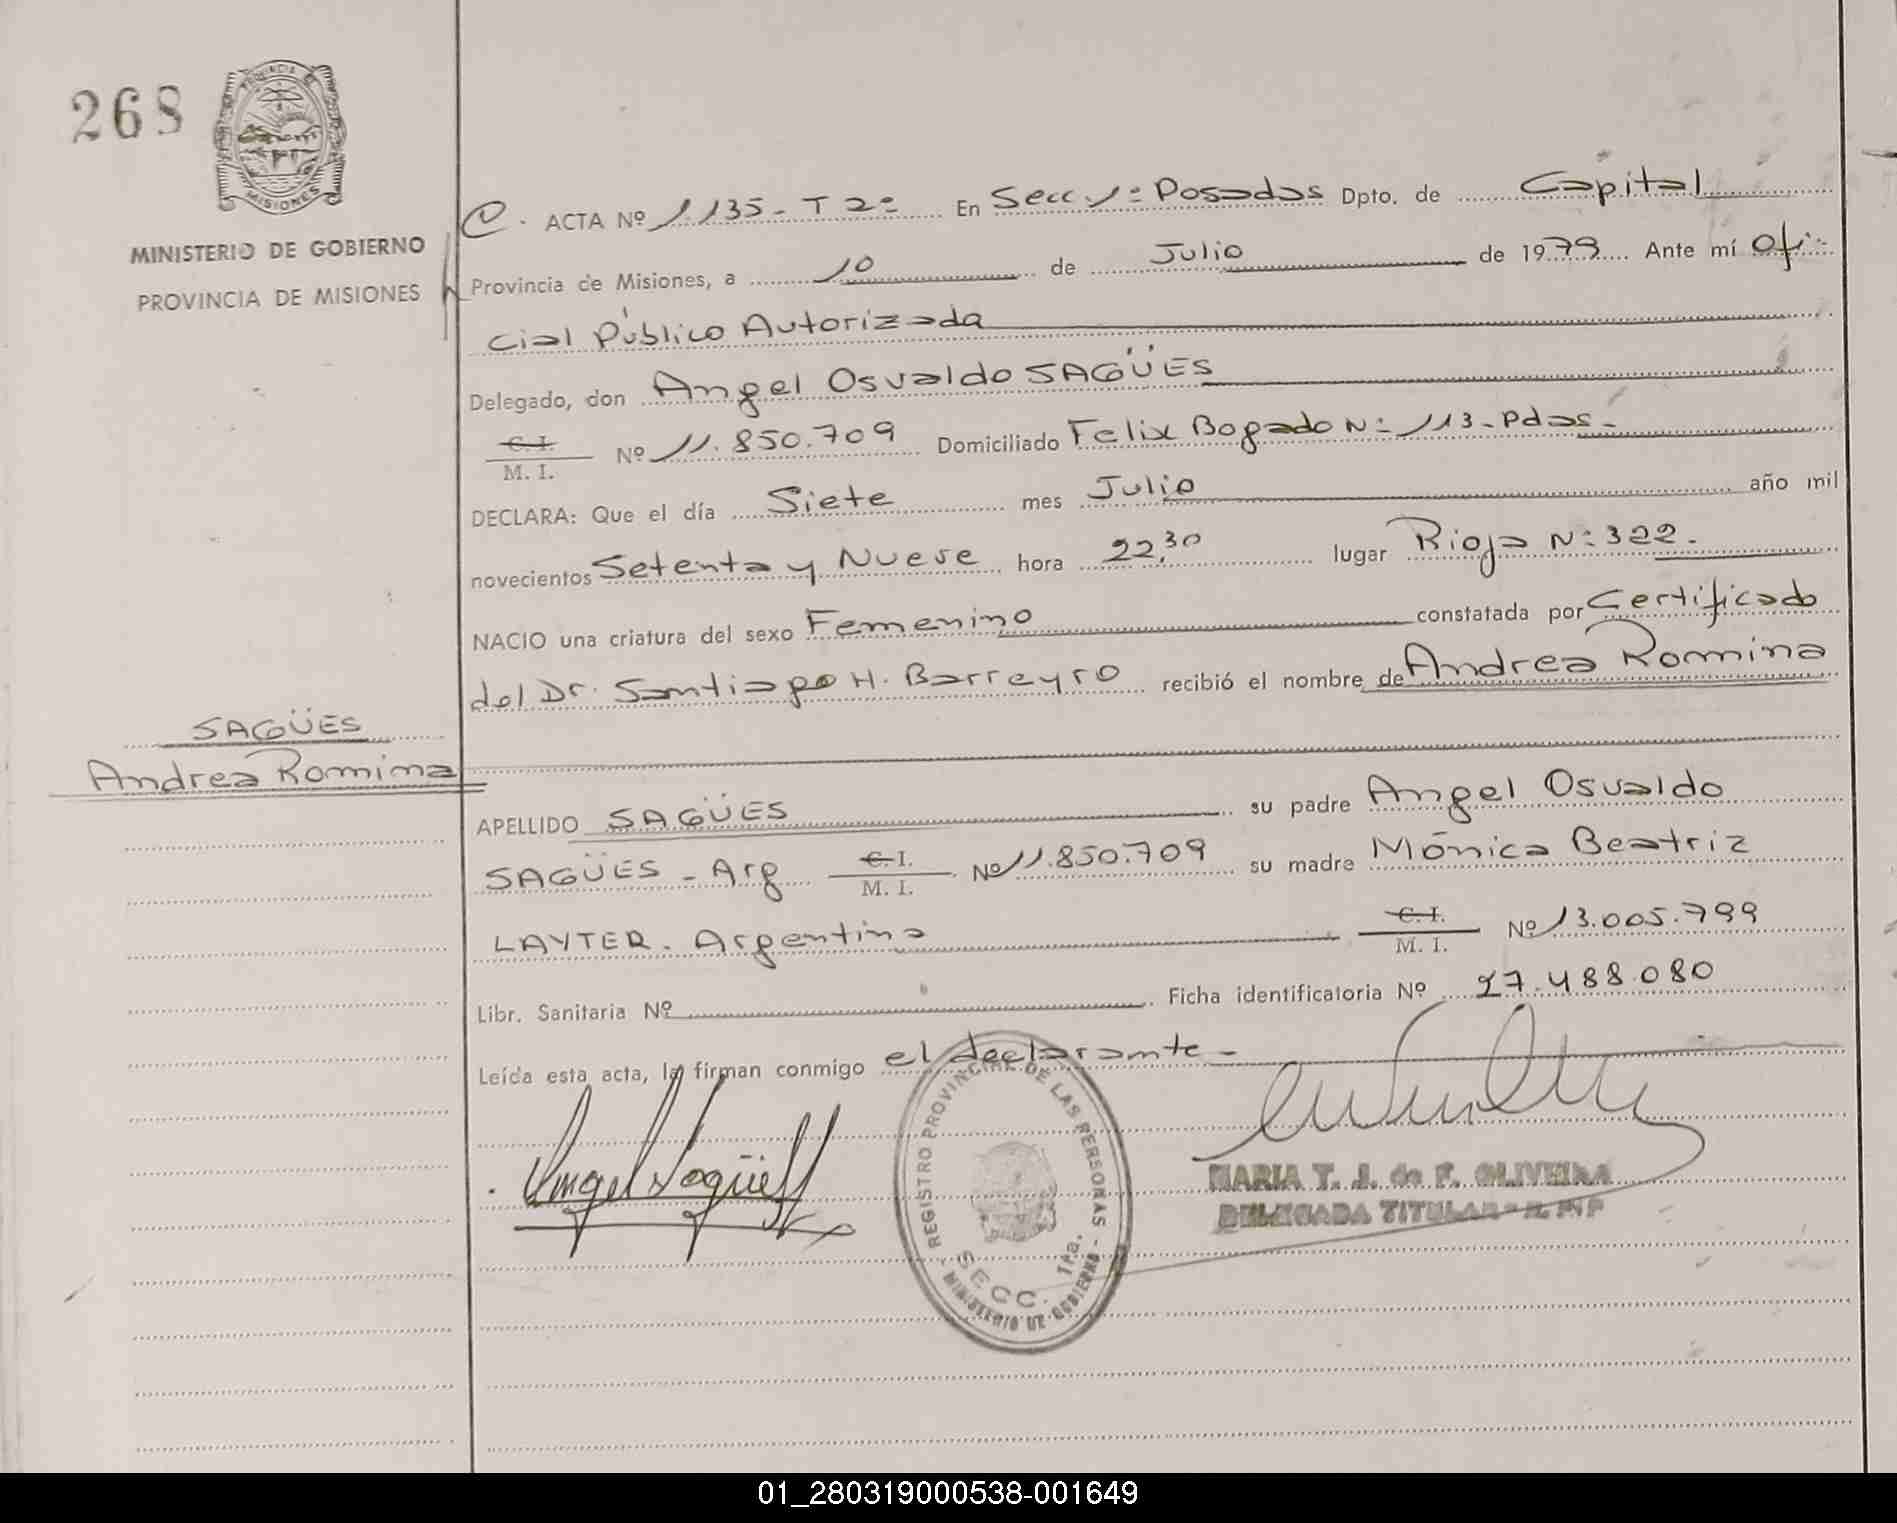 268
PROVINCIA DE
MISIONES
MINISTERIO DE GOBIERNO
PROVINCIA DE MISIONES
ACTA Nº 1.135 - T 2º En Secc 1º Posadas Dpto. de Capital
Provincia de Misiones, a 10 de Julio de 1979. Ante mí Ofi-
cial Público Autorizada
Delegado, don Angel Osvaldo SAGÜES
C. I.
M. I. Nº 11.850.709 Domiciliado Felix Bogado Nº 113 - Pdas -
DECLARA: Que el día Siete mes Julio año mil
novecientos Setenta y Nueve hora 22,30 lugar Rioja Nº 322.
NACIO una criatura del sexo Femenino constatada por Certificado
del Dr. Santiago H. Barreyro recibió el nombre de Andrea Romina
SAGÜES
Andrea Romina
APELLIDO SAGÜES su padre Angel Osvaldo
SAGÜES - Arg C. I. M. I. Nº 11.850.709 su madre Mónica Beatriz
LAYTER. Argentina C. I. M. I. Nº 13.005.799
Libr. Sanitaria Nº Ficha identificatoria Nº 27.488.080
Leída esta acta, la firman conmigo el declarante -
Angel Sagües
REGISTRO PROVINCIAL DE LAS PERSONAS - MINISTERIO DE GOBIERNO -
SECC. 1ra.
MARIA T. J. de F. OLIVEIRA
DELEGADA TITULAR - R. P. P
01_280319000538-001649